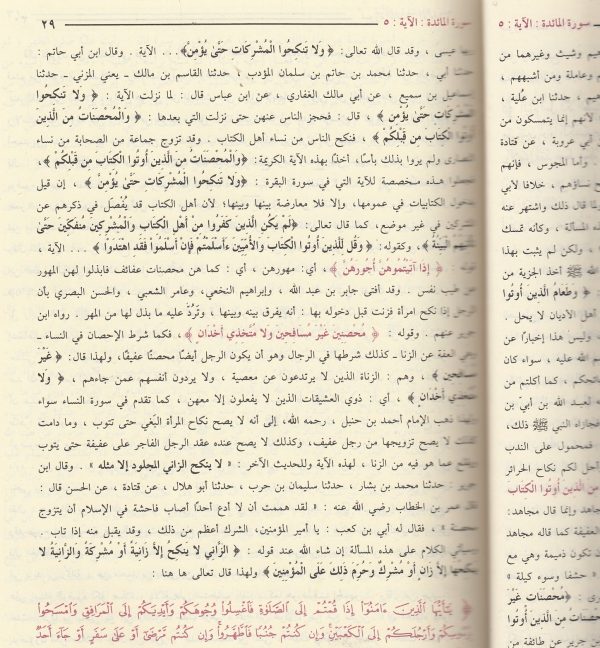 سورة المائدة : الآية : ٥
٢٩
عيسى ، وقد قال الله تعالى: ﴿ وَلَا تَنكِحُوا الْمُشْرِكَاتِ حَتَّىٰ يُؤْمِنَّ﴾... الآية . وقال ابن أبي حاتم :
أبي ، حدثنا محمد بن حاتم بن سلمان المؤدب ، حدثنا القاسم بن مالك ـ يعني المزني ـ حدثنا
إسماعيل بن سميع ، عن أبي مالك الغفاري ، عن ابن عباس قال : لما نزلت الآية : ﴿ وَلَا تَنكِحُوا
الْمُشْرِكَاتِ حَتَّىٰ يُؤْمِنَّ ﴾ ، قال : فحجز الناس عنهن حتى نزلت التي بعدها : ﴿ وَالْمُحْصَنَاتُ مِنَ الَّذِينَ
أُوتُوا الْكِتَابَ مِن قَبْلِكُمْ ﴾ ، فنكح الناس من نساء أهل الكتاب . وقد تزوج جماعة من الصحابة من نساء
النصارى ولم يروا بذلك بأسًا، أخذًا بهذه الآية الكريمة: ﴿وَالْمُحْصَنَاتُ مِنَ الَّذِينَ أُوتُوا الْكِتَابَ مِن قَبْلِكُمْ ﴾ ،
فجعلوا هذه مخصصة للآية التي في سورة البقرة : ﴿وَلَا تَنكِحُوا الْمُشْرِكَاتِ حَتَّىٰ يُؤْمِنَّ ﴾ ، إن قيل
بدخول الكتابيات في عمومها، وإلا فلا معارضة بينها وبينها؛ لأن أهل الكتاب قد يُفْصَل في ذكرهم عن
المشركين في غير موضع، كما قال تعالى: ﴿لَمْ يَكُنِ الَّذِينَ كَفَرُوا مِنْ أَهْلِ الْكِتَابِ وَالْمُشْرِكِينَ مُنفَكِّينَ حَتَّىٰ
تَأْتِيَهُمُ الْبَيِّنَةُ ﴾، وكقوله: ﴿ وَقُل لِّلَّذِينَ أُوتُوا الْكِتَابَ وَالْأُمِّيِّينَ ءَأَسْلَمْتُمْ فَإِنْ أَسْلَمُوا فَقَدِ اهْتَدَوا ﴾ ... الآية ،
وقوله : ﴿ إِذَا آتَيْتُمُوهُنَّ أُجُورَهُنَّ ﴾ ، أي: مهورهن ، أي : كما هن محصنات عفائف فابذلوا لهن المهور
عن طيب نفس . وقد أفتى جابر بن عبد الله ، وإبراهيم النخعي، وعامر الشعبي ، والحسن البصري بأن
الرجل إذا نكح امرأة فزنت قبل دخوله بها : أنه يفرق بينه وبينها ، وتَرُدّ عليه ما بذل لها من المهر . رواه ابن
جرير عنهم . وقوله : ﴿ مُحْصِنِينَ غَيْرَ مُسَافِحِينَ وَلَا مُتَّخِذِي أَخْدَانٍ ﴾ ، فكما شرط الإحصان في النساء ـ
وهي العفة عن الزنا ـ كذلك شرطها في الرجال وهو أن يكون الرجل أيضًا محصنًا عفيفًا، ولهذا قال: ﴿غَيْرَ
مُسَافِحِينَ ﴾ ، وهم : الزناة الذين لا يرتدعون عن معصية ، ولا يردون أنفسهم عمن جاءهم ، ﴿ وَلَا
مُتَّخِذِي أَخْدَانٍ ﴾ ، أي : ذوي العشيقات الذين لا يفعلون إلا معهن ، كما تقدم في سورة النساء سواء
ذهب الإمام أحمد بن حنبل ، رحمه الله، إلى أنه لا يصح نكاح المرأة البَغي حتى تتوب ، وما دامت
كذلك لا يصح تزويجها من رجل عفيف، وكذلك لا يصح عنده عقد الرجل الفاجر على عفيفة حتى يتوب
ويقلع عما هو فيه من الزنا ، لهذه الآية وللحديث الآخر : « لا ينكح الزاني المجلود إلا مثله » . وقال ابن
جرير : حدثنا محمد بن بشار ، حدثنا سليمان بن حرب ، حدثنا أبو هلال ، عن قتادة ، عن الحسن قال :
قال عمر بن الخطاب رضي الله عنه : « لقد هممت أن لا أدع أحدًا أصاب فاحشة في الإسلام أن يتزوج
محصنة » ، فقال له أبي بن كعب : يا أمير المؤمنين، الشرك أعظم من ذلك ، وقد يقبل منه إذا تاب .
وسيأتي الكلام على هذه المسألة إن شاء الله عند قوله : ﴿ الزَّانِي لَا يَنكِحُ إِلَّا زَانِيَةً أَوْ مُشْرِكَةً وَالزَّانِيَةُ لَا
يَنكِحُهَا إِلَّا زَانٍ أَوْ مُشْرِكٌ وَحُرِّمَ ذَٰلِكَ عَلَى الْمُؤْمِنِينَ ﴾ ولهذا قال تعالى ها هنا :
﴿ يَٰٓأَيُّهَا الَّذِينَ ءَامَنُوٓا إِذَا قُمْتُمْ إِلَى الصَّلَوٰةِ فَاغْسِلُوا وُجُوهَكُمْ وَأَيْدِيَكُمْ إِلَى الْمَرَافِقِ وَامْسَحُوا
بِرُءُوسِكُمْ وَأَرْجُلَكُمْ إِلَى الْكَعْبَيْنِ وَإِن كُنتُمْ جُنُبًا فَاطَّهَّرُوا وَإِن كُنتُم مَّرْضَىٰٓ أَوْ عَلَىٰ سَفَرٍ أَوْ جَآءَ أَحَدٌ
سورة المائدة : الآية : ٥
وشيث وغيرهما من
وعاملة ومن أشبههم ،
، حدثنا ابن عُلَية ،
لأنهم إنما يتمسكون من
أبي عروبة ، عن قتادة
وأما المجوس ، فإنهم
نساؤهم ، خلافا لأبي
قال ذلك واشتهر عنه
المسألة ، وكأنه تمسك
، ولكن لم يثبت بهذا
الله ﷺ أخذ الجزية من
: ﴿ وَطَعَامُ الَّذِينَ أُوتُوا
أهل الأديان لا يحل .
، وليس هذا إخبارًا عن
الله عليه ، سواء كان
، كما أكلتم من
لعبد الله بن أبي بن
فجازاه النبي ﷺ ذلك،
فمحمول على الندب
وأحل لكم نكاح الحرائر
مِنَ الَّذِينَ أُوتُوا الْكِتَابَ
مجاهد وإنما قال مجاهد:
العفيفة كما قاله مجاهد
تكون ذمية وهي مع
« حشفا وسوء كيلة »
: ﴿مُحْصَنَاتٍ غَيْرَ
مِنَ الَّذِينَ أُوتُوا
بن جرير عن طائفة من